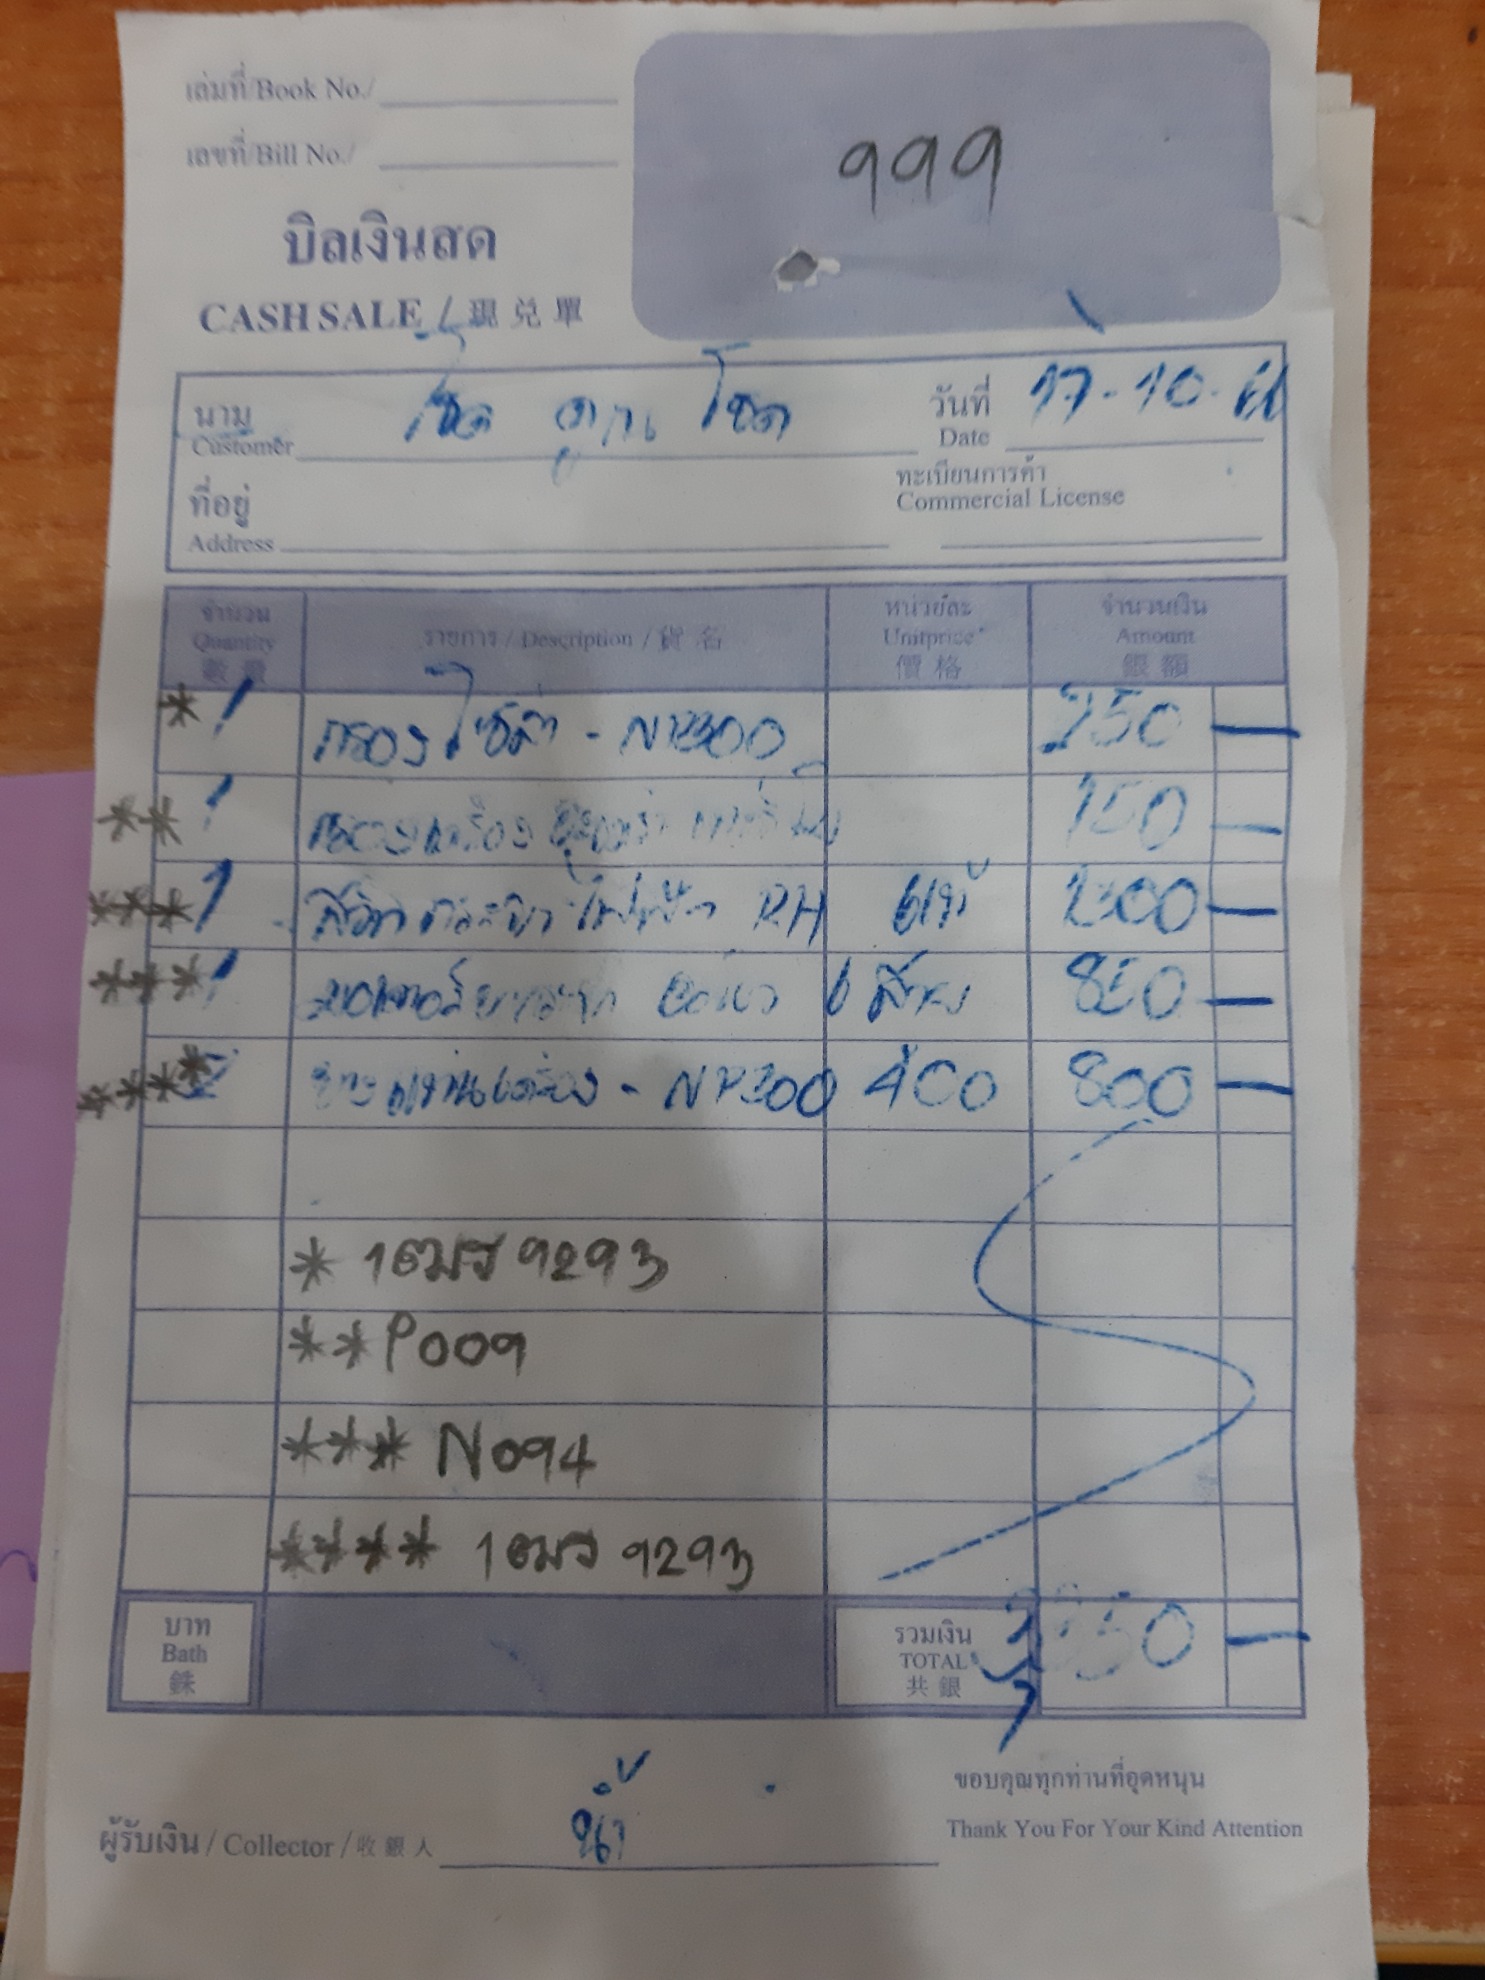 เล่มที่/Book No./
เลขที่/Bill No./
999
บิลเงินสด
CASH SALE / 現兌單
นาม
Customer
โชค คูณ โชค
วันที่
Date
17-10-
ที่อยู่
Address
ทะเบียนการค้า
Commercial License
จำนวน
Quantity
數量
รายการ / Description / 貨名
หน่วยละ
Unitprice
價格
จำนวนเงิน
Amount
銀額
* 1 กรองโซล่า - NP300 250 —
** 1 กรองเครื่อง 150 —
*** 1 RH แท้ 1300 —
*** 1 6 สาย 850 —
**** 2 ยางแท่นเครื่อง - NP300 400 800 —
* 1ฒร 9293
** P009
*** N094
**** 1ฒร 9293
บาท
Bath
銖
รวมเงิน
TOTAL
共銀
3350 —
ผู้รับเงิน / Collector / 收銀人
ขอบคุณทุกท่านที่อุดหนุน
Thank You For Your Kind Attention